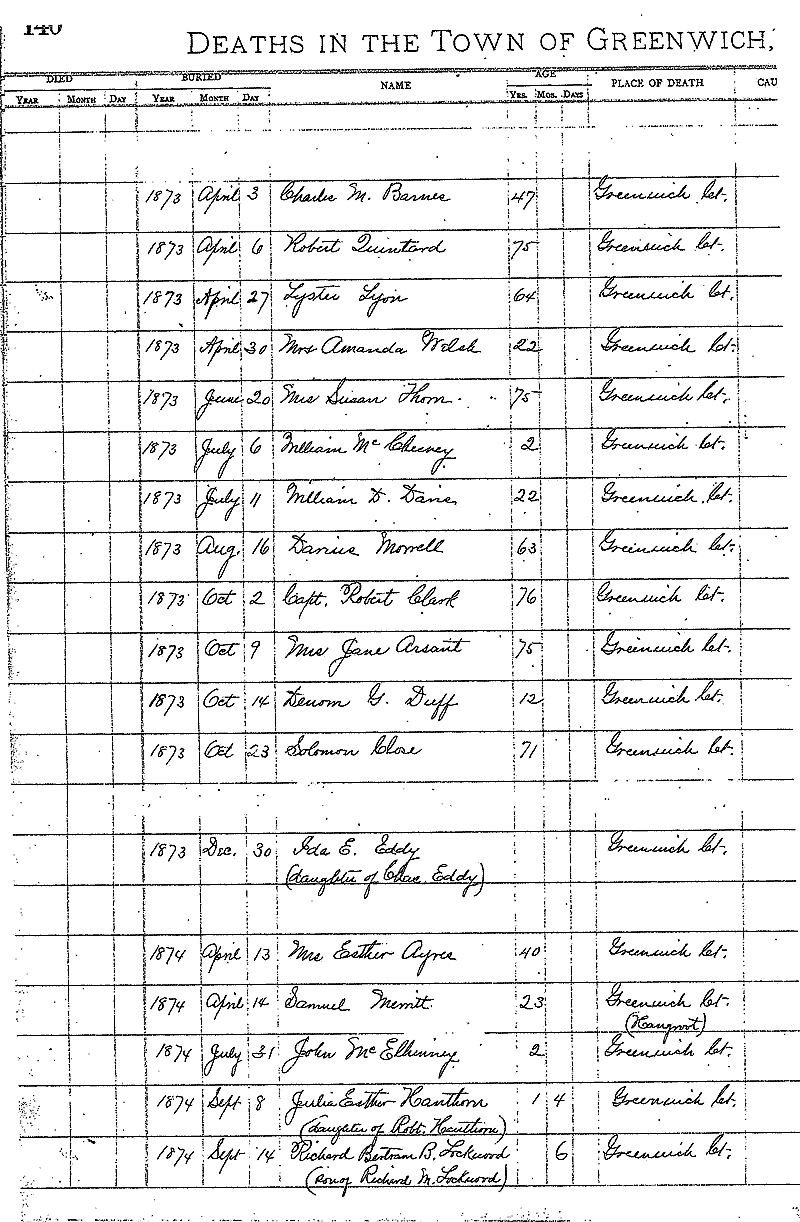 140
DEATHS IN THE TOWN OF GREENWICH,
DIED BURIED NAME AGE PLACE OF DEATH CAU
YEAR MONTH DAY YEAR MONTH DAY YRS. MOS. DAYS
1873 April 3 Charles M. Barnes 47 Greenwich Ct.
1873 April 6 Robert Quintard 75 Greenwich Ct.
1873 April 27 Lyster Lyon 64 Greenwich Ct.
1873 April 30 Mrs Amanda Welsh 22 Greenwich Ct.
1873 June 20 Mrs Susan Thom 75 Greenwich Ct.
1873 July 6 William Mc Chesney 2 Greenwich Ct.
1873 July 11 William D. Davis 22 Greenwich Ct.
1873 Aug. 16 Darius Morrell 63 Greenwich Ct.
1873 Oct 2 Capt. Robert Clark 76 Greenwich Ct.
1873 Oct 9 Mrs Jane 75 Greenwich Ct.
1873 Oct 14 G. Duff 12 Greenwich Ct.
1873 Oct 23 Solomon Close 71 Greenwich Ct.
1873 Dec. 30 Ida E. Eddy Greenwich Ct.
(daughter of Chas. Eddy)
1874 April 13 Mrs Esther Ayres 40 Greenwich Ct.
1874 April 14 Samuel Merritt 23 Greenwich Ct.
(Hangroot)
1874 July 31 John Mc Elhinney 2 Greenwich Ct.
1874 Sept 8 Julia Esther Hanthorn 1 4 Greenwich Ct.
(daughter of Robt. Hanthorn)
1874 Sept 14 Richard Bertram B. Lockwood 6 Greenwich Ct.
(son of Richard M. Lockwood)